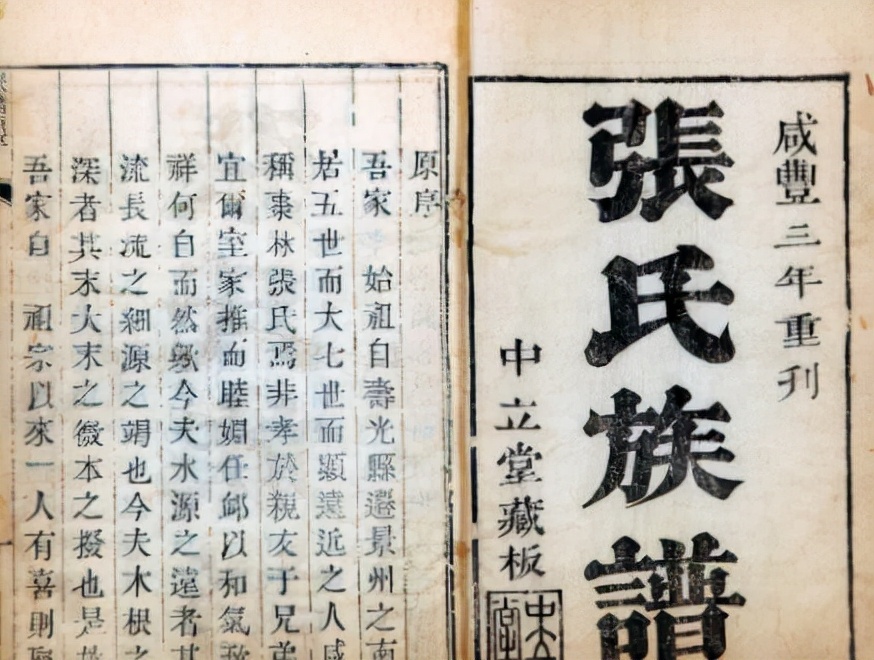 咸豐三年重刊
張氏族譜
中立堂藏板
原序
吾家 始祖自壽光縣遷景州之南
居五世而大七世而顯遠近之人咸
稱棗林張氏焉非孝於親友于兄弟
宜爾室家推而睦婣任䘏以和氣致
祥何自而然歟今夫水源之遠者其
流長流之細源之竭也今夫木根之
深者其末大末之微本之撥也是故
吾家自 祖宗以來一人有喜則